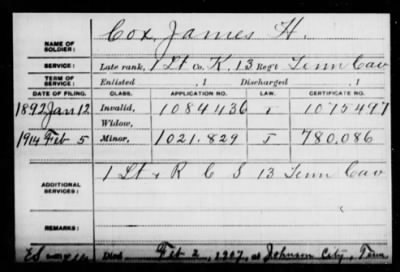 Cox, James H.
NAME OF SOLDIER:
SERVICE: Late rank, 1 Lt Co. K, 13 Reg't Tenn Cav
TERM OF SERVICE: Enlisted , 1 Discharged , 1
DATE OF FILING. CLASS. APPLICATION NO. LAW. CERTIFICATE NO.
1892 Jan 12 Invalid, 1084436 1075497
Widow,
1914 Feb 5 Minor, 1021.829 780,086
ADDITIONAL SERVICES: 1 Lt & R C S 13 Tenn Cav
REMARKS:
Died Feb 2, 1907, at Johnson City, Tenn